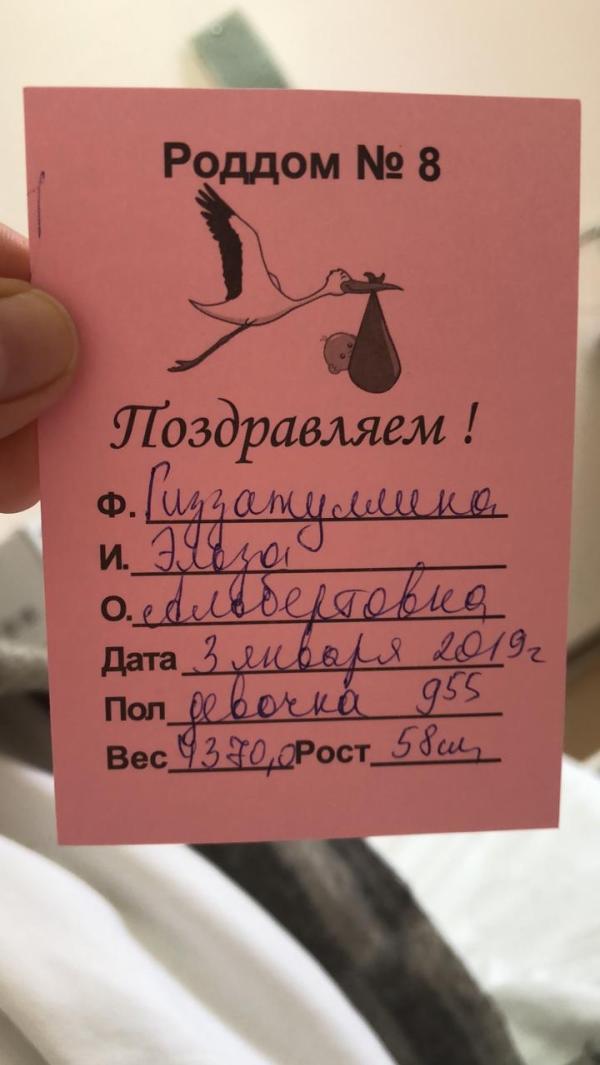 Роддом № 8
Поздравляем !
Ф. Гиззатуллина
И. Эльза
О. Альбертовна
Дата 3 января 2019г
Пол девочка 955
Вес 4370,0 Рост 58см